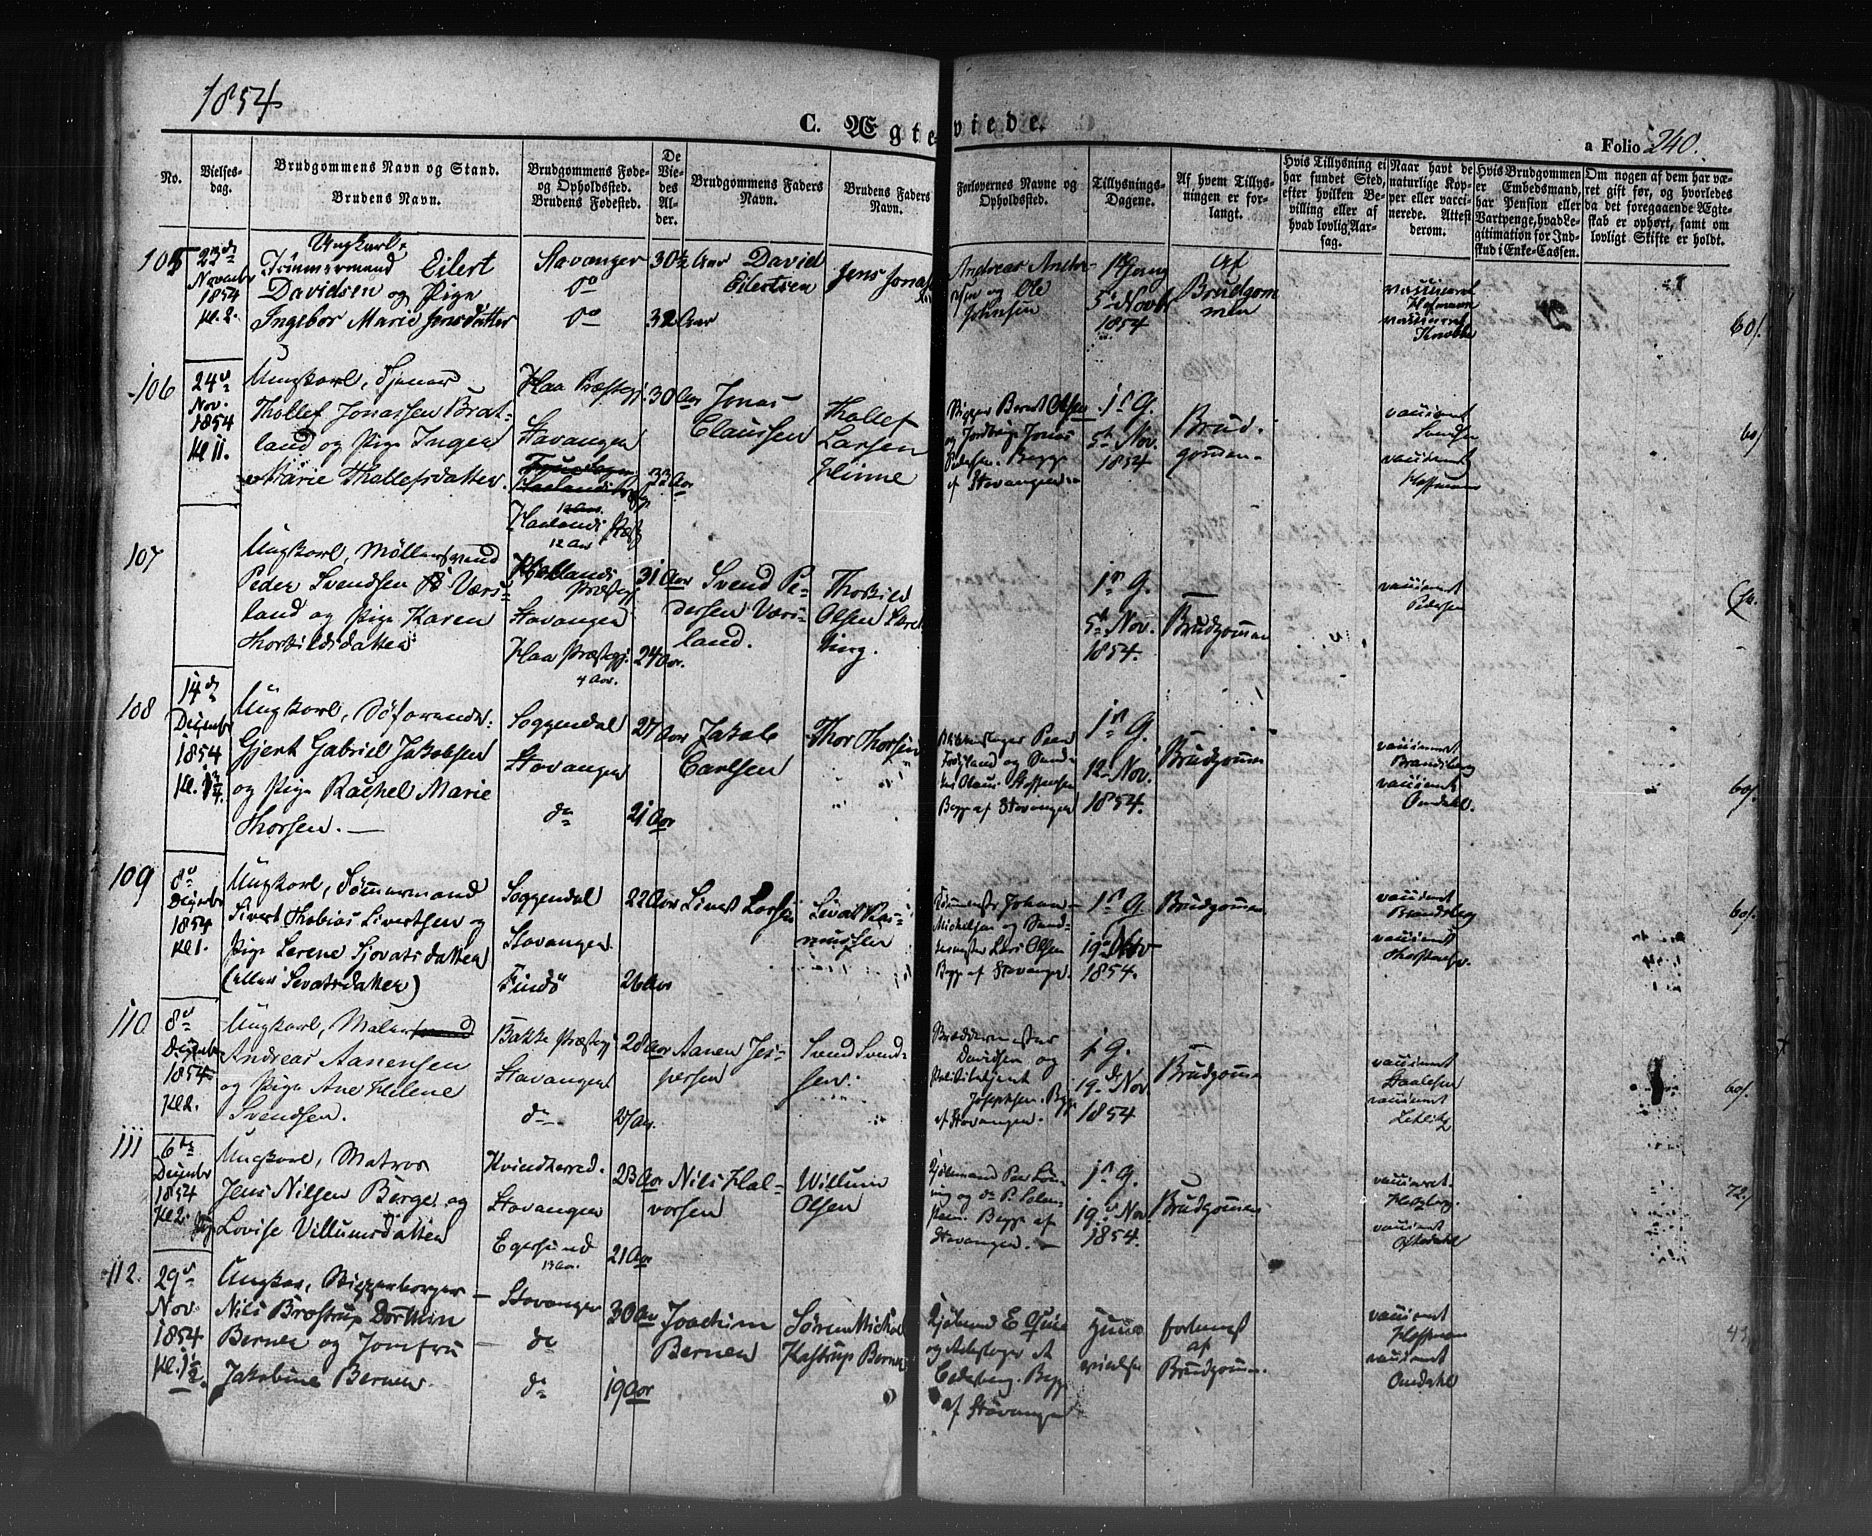 1854
C. Ægteviede.
a Folio 240.
No.
Vielses-
dag.
Brudgommens Navn og Stand.
Brudens Navn.
Brudgommens Føde-
og Opholdssted.
Brudens Fødested.
De
Vie-
des
Al-
der.
Brudgommens Faders
Navn.
Brudens Faders
Navn.
Forlovernes Navne og
Opholdssted.
Tillysnings-
Dagene.
Af hvem Tillys-
ningen er for-
langt.
Hvis Tillysning ei
har fundet Sted,
efter hvilken Be-
villing eller af
hvad lovlig Aar-
sag.
Naar havt de
naturlige Kop-
per eller vacci-
nerede. Attest
derom.
Hvis Brudgommen
er Embedsmand,
har Pension eller
Vartpenge, hvad Le-
gitimation for Ind-
skud i Enke-Cassen.
Om nogen af dem har væ-
ret gift før, og hvorledes
da det foregaaende Ægte-
skab er ophørt, samt om
lovligt Skifte er holdt.
105
23de
November
1854
Kl. 2.
Ungkarl,
Tømmermand Eilert
Davidsen og Pige
Ingebor Marie Jensdatter
Stavanger
do
do
30½ Aar
32 Aar
David
Eilertsen
Jens Jonas
Andreas
og Ole
Johnsen
1st Gang
5te Novbr
1854
Af
Brudgom
men
vaccineret
Hofmann
vaccineret
60/.
106
24d
Nov.
1854
Kl. 11.
Ungkarl, Tjener
Thollef Jonassen Brat-
land og Pige Inger
Marie Thollefsdatter.
Haa Præstegj.
Stavanger
Haalands Præstgj
12 Aar
30 Aar
33 Aar
Jonas
Claussen
Thollef
Larsen
Hinne
Rigger Berent Olsen
og Jonas
Pedersen. Begge
af Stavanger
1st G.
5te Nov.
1854
Brud-
gommen
vaccineret
vaccineret
Hoffmann
60/
107
Ungkarl, Møllersvend
Peder Svendsen Værs-
land og Pige Karen
Thorkildsdatter
Hjellands
Præstegj
Stavanger
Haa Præstegj.
4 Aar.
31 Aar
24 Aar.
Svend Pe-
dersenVærs-
land.
Thorkild
Olsen
1st G.
5te Nov.
1854.
Brudgommen
vaccineret
Pedersen
108
14de
December
1854
Ungkarl, Søfarende
Gjert Gabriel Jakobsen
og Pige Rachel Marie
Thorsen.
Soggendal
Stavanger
do
27 Aar
21 Aar
Jakob
Carlsen
Thor Thorsen
Blikkenslager Peer
og
Claus Steffensen
Begge af Stavanger
1st G.
12te Nov.
1854.
Brudgommen
vaccineret
Brandsberg
vaccineret
Omdahl.
60/.
109
8d
Decembr
1854
Kl 1.
Ungkarl, Tømmermand
Sivert Thobias Sivertsen og
Pige Serene Sjovatsdatter
(eller Sevatsdatter)
Soggendal
Stavanger
Findø
22 Aar
26 Aar
Sivert Larsen
Sivat Ras-
mussen
Johan
Michelsen og
Lars Olsen
Begge af Stavanger
1st G.
19de Nov
1854.
Brudgommen
vaccineret
Brandsberg
vaccineret
60/.
110
8d
Decembr
1854
Kl 2.
Ungkarl, Maler
Andreas Aanensen
og Pige Ane Helene
Svendsen.
Bakke Præstegj
Stavanger
do
28 Aar
27 Aar.
Aanen Jes-
persen
Svend Svend-
sen.
Davidsen og
Politibetjent
Josephsen. Begge
af Stavanger.
1 G.
19de Nov
1854
Brudgommen
vaccineret
Staalesen
vaccineret
Zetlitz
60/.
111
6te
December
1854
Kl 2.
Ungkarl, Matros
Jens Nilsen Berge og
Pige Lovise Villumsdatter
Kvindherred.
Stavanger
Egersund
13 Aar.
23 Aar
21 Aar
Nils Hal-
vorsen
Willum
Olsen
Kjøbmand Peer
og do P.
Begge af
Stavanger.
1st G.
19d Nov.
1854.
Brudgommen
vaccineret.
Hertzberg.
vaccineret
72/
112.
29d
Nov.
1854
Kl. 1½.
Ungkar, Skipperborger
Nils Brostrup Dorthin
Berner og Jomfru
Jakobine Berner.
Stavanger
do
do
30 Aar
19 Aar
Joachim
Berner
Søren Michal
Kastrup Berner
Kjøbmand E
og
Cedersberg. Begge
af Stavanger
Huus
vielse
forlangt
af
Brudgommen.
vaccineret
Hoffmann
vaccineret
Omdahl